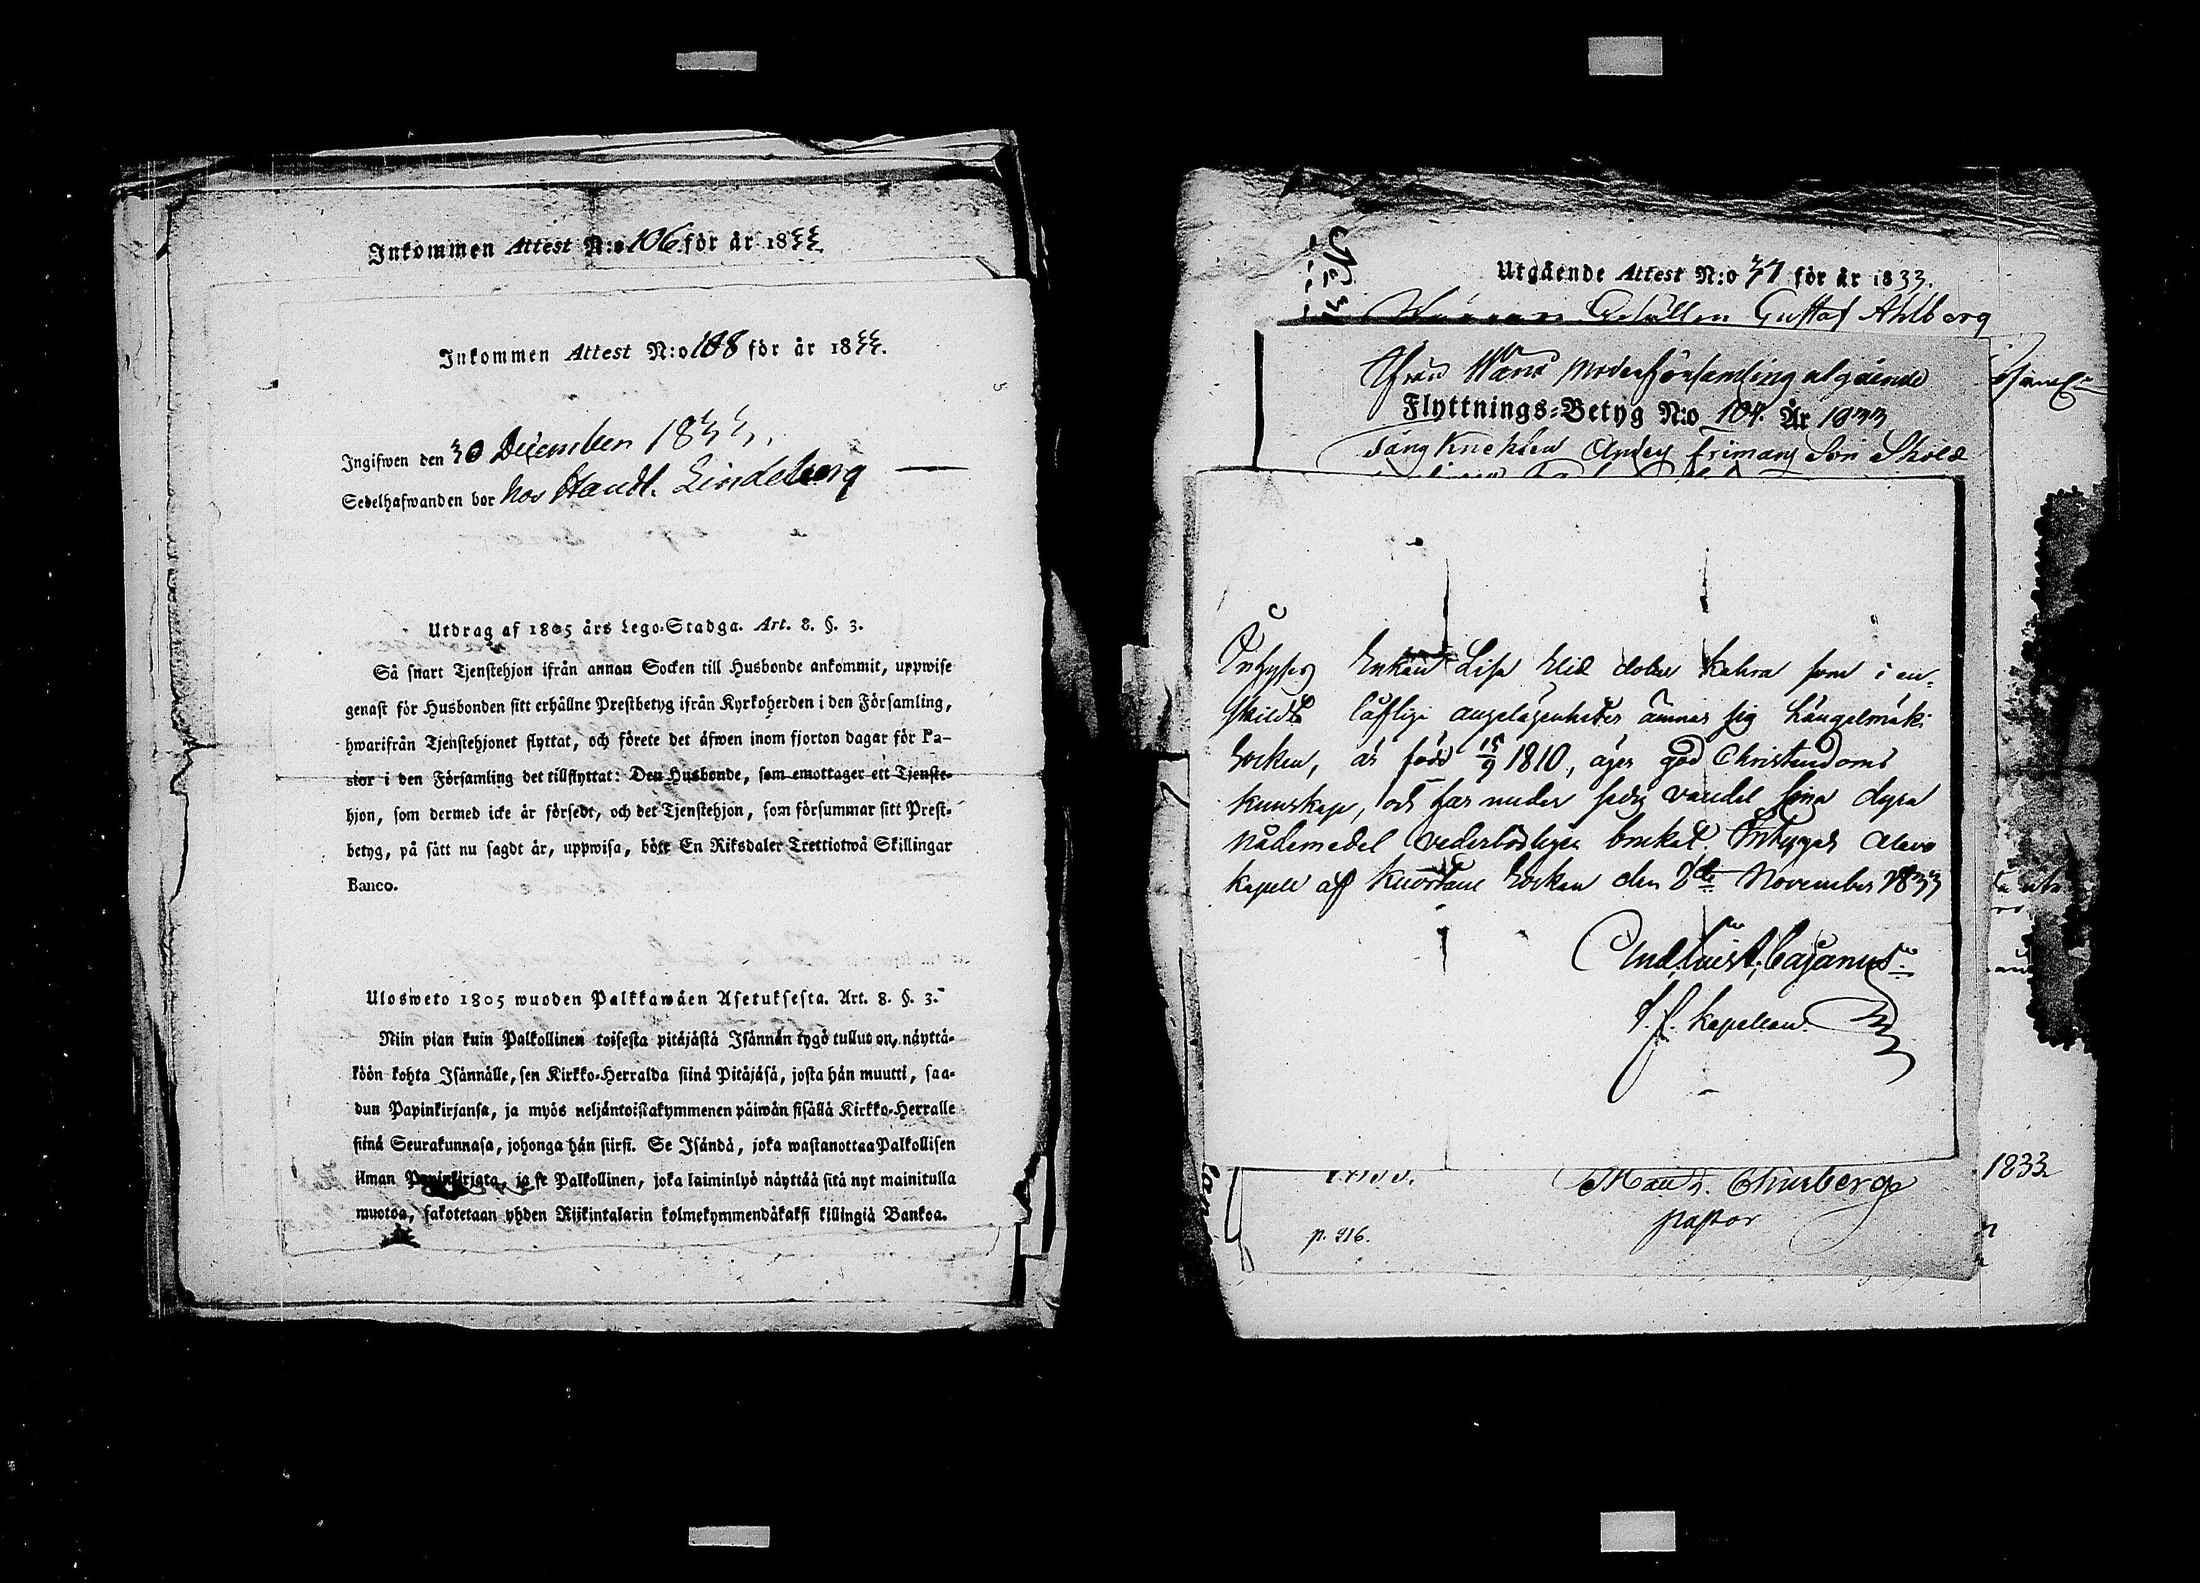 Inkommen Attest N:o 106 för år 1833
Inkommen Attest N:o 108 för år 1833.
Ingifwen den 30 December 1833.
Sedelhafwanden bor hos Handl. Lindeberg
Utdrag af 1805 års Lego-Stadga. Art. 8. §. 3.
Så snart Tjenstehjon ifrån annan Socken till Husbonde ankommit, uppwise
genast för Husbonden sitt erhållne Prestbetyg ifrån Kyrkoherden i den Församling,
hwarifrån Tjenstehjonet flyttat, och förete det äfwen inom fjorton dagar för Pa-
stor i den Församling det tillflyttat: Den Husbonde, som emottager ett Tjenste-
hjon, som dermed icke är försedt, och det Tjenstehjon, som försummar sitt Prest-
betyg, på sätt nu sagdt är, uppwisa, böte En Riksdaler Trettiotwå Skillingar
Banco.
Ulosweto 1805 wuoden Palkkawäen Asetuksesta. Art. 8. §. 3.
Niin pian kuin Palkollinen toisesta pitäjästä Isännän tygö tullut on, näyttä-
köön kohta Isännälle, sen Kirkko-Herralda siinä Pitäjäsä, josta hän muutti, saa-
dun Papinkirjansa, ja myös neljäntoistakymmenen päiwän sisällä Kirkko-Herralle
siinä Seurakunnasa, johonga hän siirsi. Se Isändä, joka wastanottaa Palkollisen
ilman Papinkirjata, ja se Palkollinen, joka laiminlyö näyttää sitä nyt mainitulla
muotoa, sakotetaan yhden Rijkintalarin kolmekymmendäkaksi killingiä Bankoa.
Utgående Attest N:o 37 för år 1833.
Gesällen Gustaf Ahlberg
Ifrån Wånå Moderförsamling afgående
Flyttnings-Betyg N:o 104. År 1833
Frimans Son Sköld
Enkan Lisa som i en-
skildte låflige angelägenheter ämnar sig Längelmäki
Socken, är född 15/9 1810, äger god Christendoms
kunskap, och har under vandel sina dyra
nådemedel vederbörligen brukat. Intygar Alavo
kapell af Kuortane Socken den 8de November 1833
Cajanus
V. f. Kapellan.
Churberg
pastor
p. 216.
1833